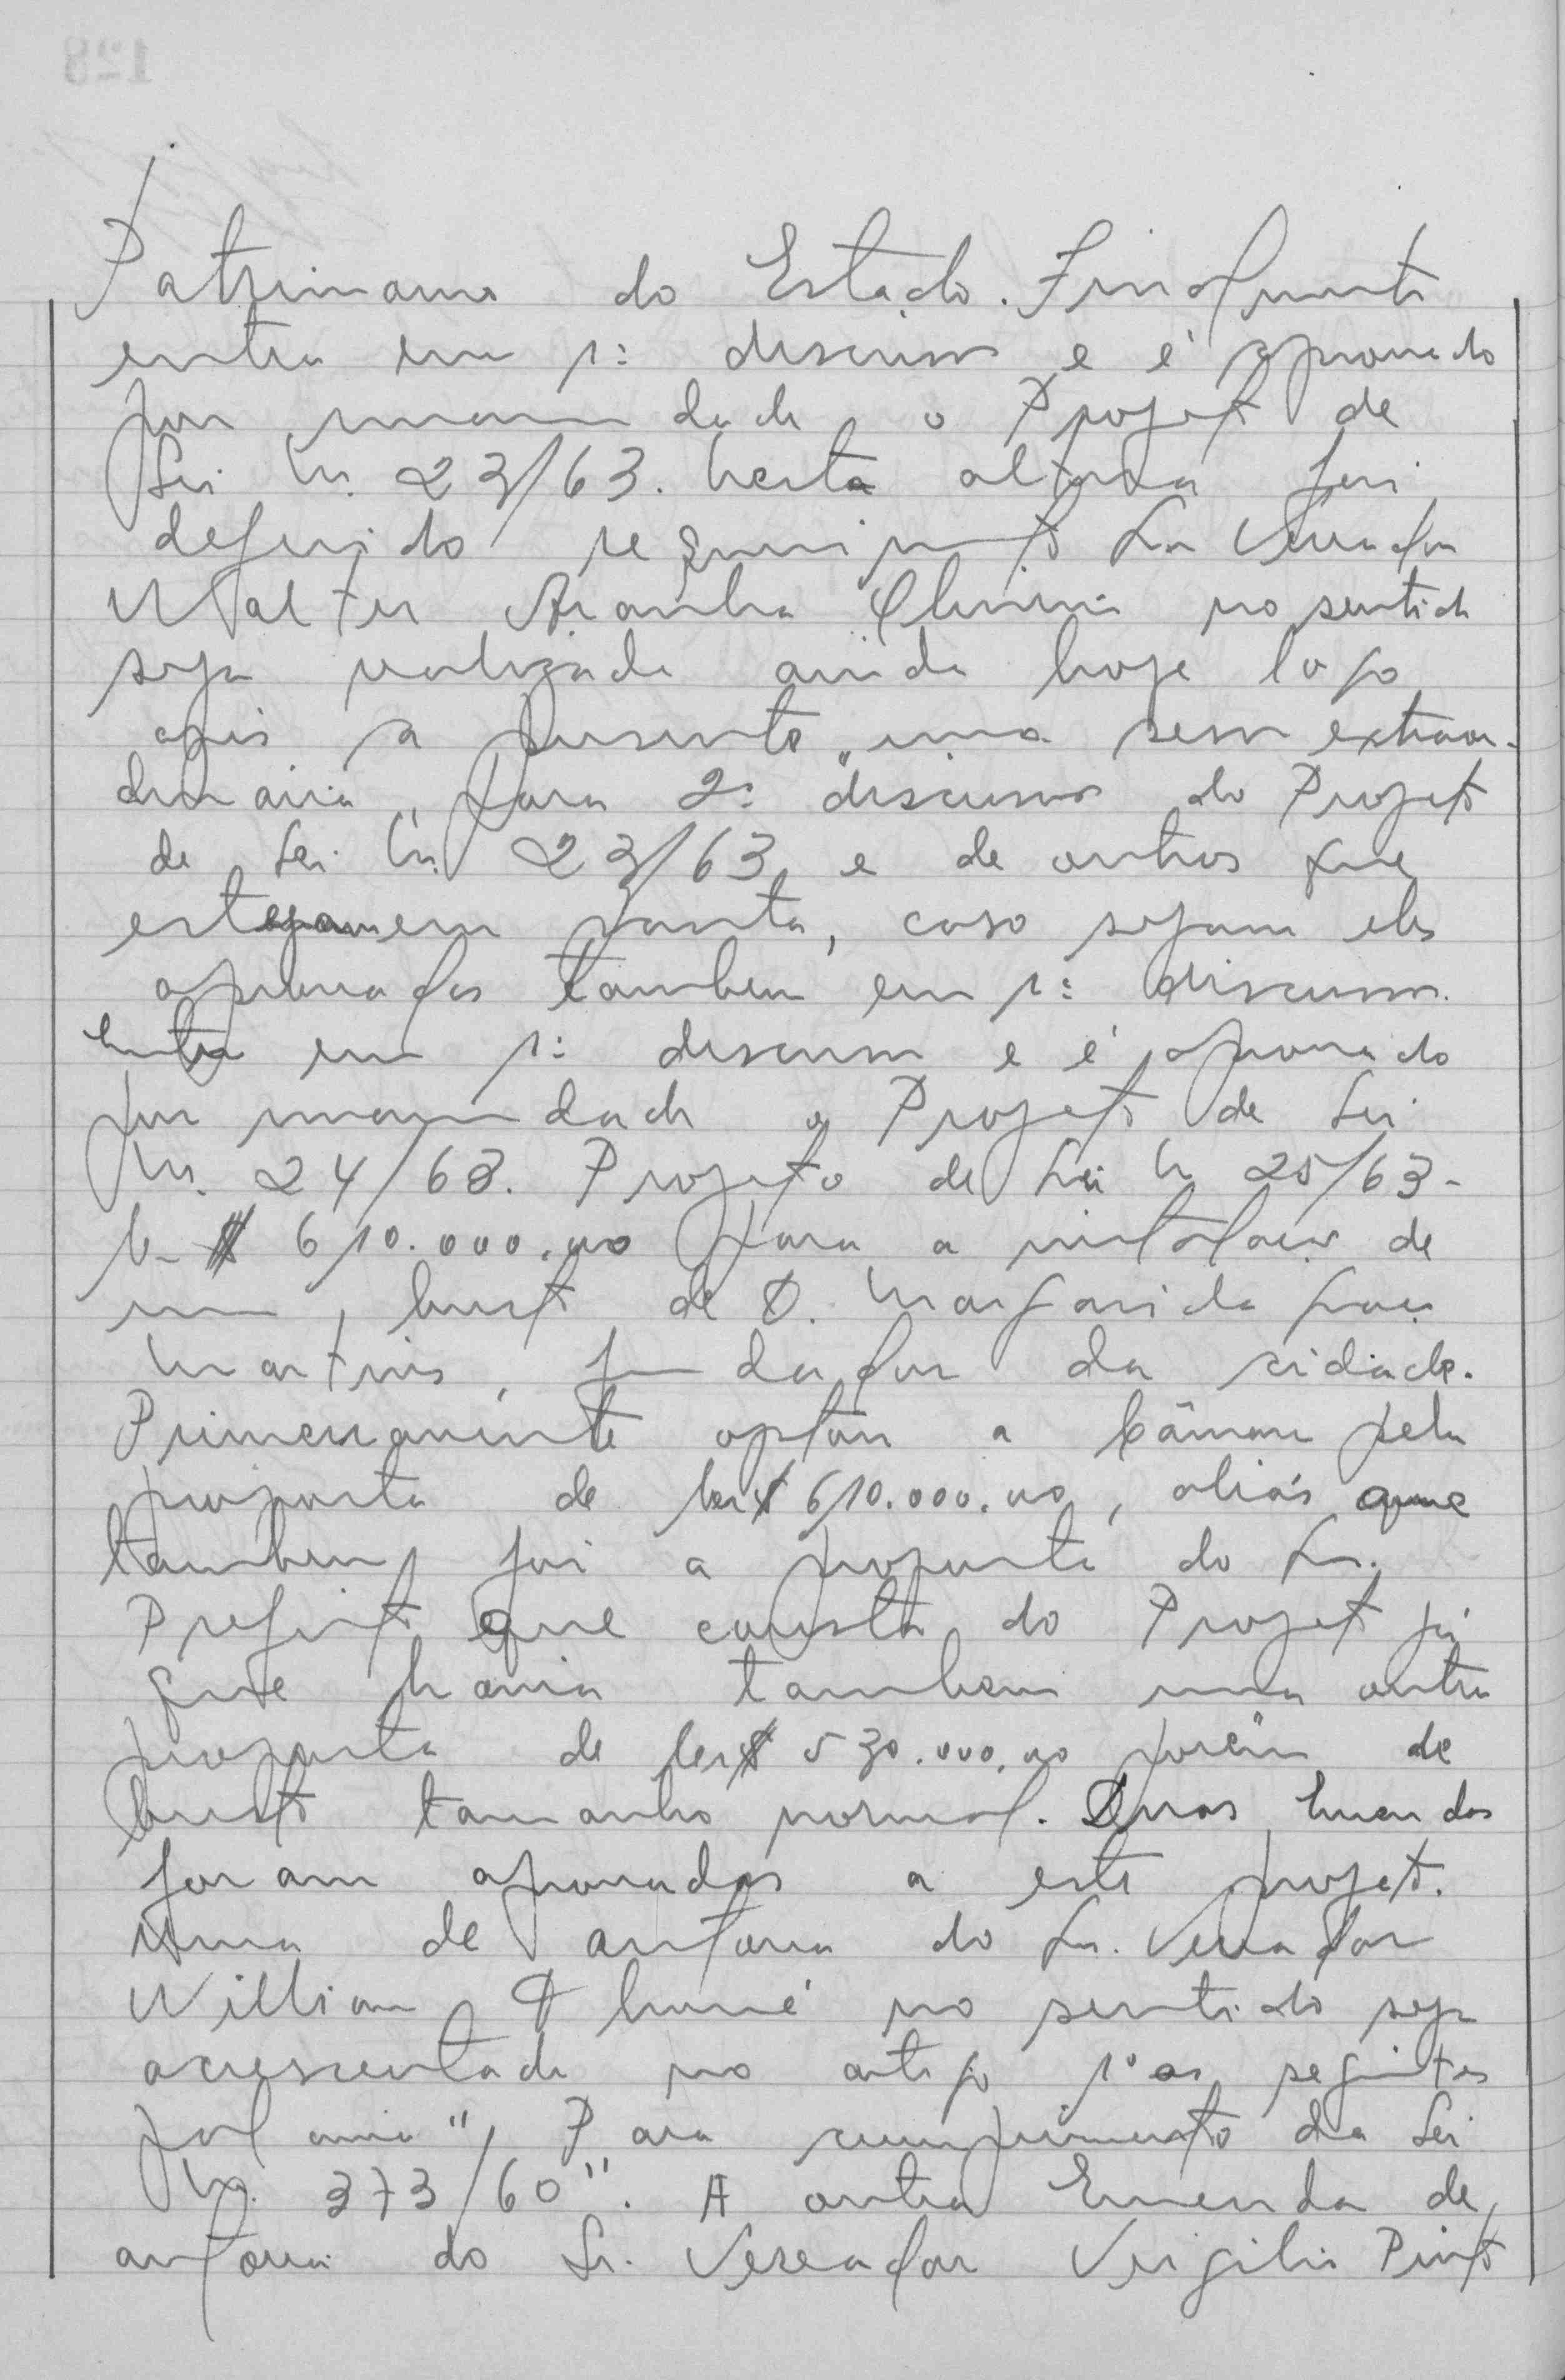 Patrimonio do Estado. Finalmente
entra em 1ª discussão e é aprovado
por unanimidade o Projeto de
Lei Nr. 23/63. Nesta altura foi
deferido requerimento do Vereador
Walter Aranha no sentido
seja realizada ainda hoje logo
após a presente, uma sessão extraor-
dinaria, para 2ª discussão do Projeto
de Lei Nr. 23/63 e de outros que
estejam em pauta, caso sejam eles
aprovados tambem em 1ª discussão.
Entra em 1ª discussão e é aprovado
por unanimidade o Projeto de Lei
Nr. 24/63. Projeto de Lei Nr 25/63-
Cr$ 610.000,00 para a instalação de
um busto de D. Margarida
Martins, fundador da cidade.
Primeiramente optou a Câmara pela
proposta de Cr$ 610.000,00, aliás que
tambem foi a proposta do Sr.
Prefeito que consta do Projeto já
que havia tambem uma outra
proposta de Cr$ 530.000,00 porêm de
busto tamanho normal. Duas Emendas
foram aprovadas a este projeto.
Uma de autoria do Sr. Vereador
Willian no sentido seja
acrescentado no artigo 1º as seguintes
palavras", Para cumprimento da Lei
Nr. 373/60". A outra Emenda de
autoria do Sr. Vereador Virgilio Pinto